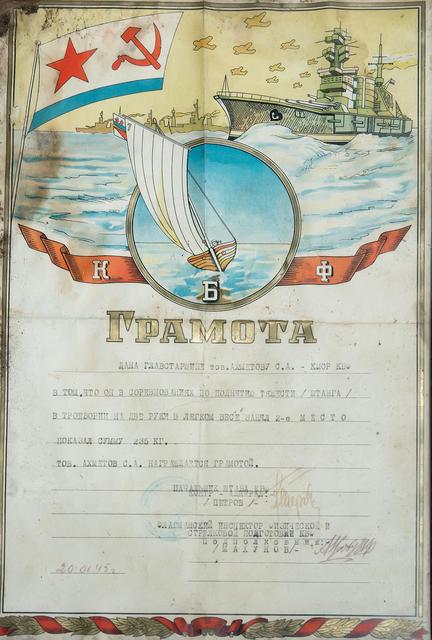 К Б Ф
ГРАМОТА
ДАНА ГЛАВСТАРШИНЕ тов.АХМЕТОВУ С.А. - КМОР КБФ
В ТОМ,ЧТО ОН В СОРЕВНОВАНИЯХ ПО ПОДНЯТИЮ ТЯЖЕСТИ / ШТАНГА /
В ТРОЕБОРИИ НА ДВЕ РУКИ В ЛЕГКОМ ВЕСЕ ЗАНЯЛ 2-е М Е С Т О
ПОКАЗАЛ СУММУ 235 КГ.
ТОВ. АХМЕТОВ С.А. НАГРАЖДАЕТСЯ ГРАМОТОЙ.
НАЧАЛЬНИК ШТАБА КБФ
КОНТР - АДМИРАЛ
/ПЕТРОВ /-
ФЛАГМАНСКИЙ ИНСПЕКТОР ФИЗИЧЕСКОЙ И
СТРЕЛКОВОЙ ПОДГОТОВКИ КБФ
П о д п о л к о в н и к
/МАХУНОВ/-
20.01.45г.